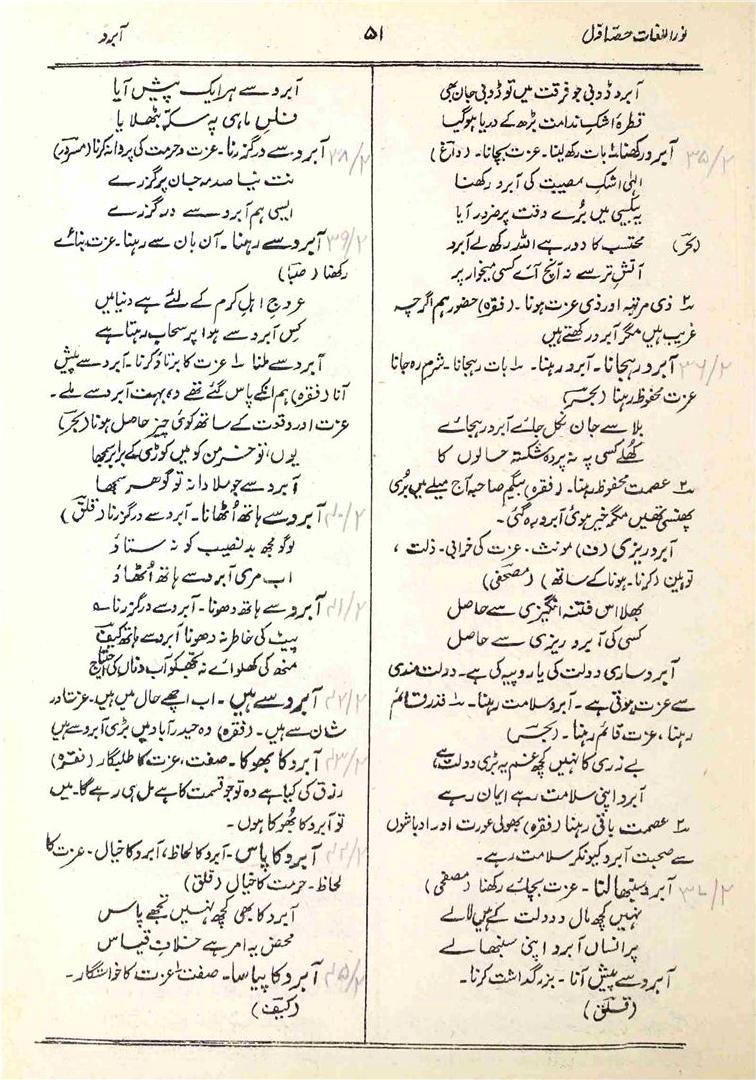 نور اللغات حصّہ اوّل
۵۱
آبرو
آبرو ڈوبی جو فرقت میں تو ڈوبی جان بھی
قطرہ اشکِ ندامت بڑھ کے دریا ہوگیا
۳۵/۲
آبرو رکھنا ۱ بات رکھ لینا۔ عزت بچانا۔ (داغ)
الہٰی اشکِ مصیبت کی آبرو رکھنا
یہ بیکسی میں بُرے وقت پر ضرور آیا
(بحر) محتسب کا دور ہے اللہ رکھ لے آبرو
آتشِ تر سے نہ آنچ آئے کسی میخوار پر
۲ ذی مرتبہ اور ذی عزت ہونا۔ (فقرہ) حضور ہم اگرچہ
غریب ہیں مگر آبرو رکھتے ہیں
۳۶/۲
آبرو رہجانا۔ آبرو رہنا۔ ۱ بات رہجانا۔ شرم رہ جانا
عزت محفوظ رہنا (بحر)
بلا سے جان نکل جائے آبرو رہجائے
کھُلے کسی پہ نہ پردہ شکستہ حالوں کا
۲ عصمت محفوظ رہنا۔ (فقرہ) بیگم صاحبہ آج میلے میں بُری
پھنسی تھیں مگر خیر ہوئی آبرو رہ گئی۔
آبرو ریزی (ف) مونث۔ عزت کی خرابی۔ ذلت،
توہین (کرنا۔ ہونا کے ساتھ) (مصحفی)
بھلا اس فتنہ انگیزی سے حاصل
کسی کی آبرو ریزی سے حاصل
آبرو ساری دولت کی یا روپیہ کی ہے۔ دولت مندی
سے عزت ہوتی ہے۔ آبرو سلامت رہنا۔ ۱ قدر قائم
رہنا، عزت قائم رہنا۔ (بحر)
بے زری کا نہیں کچھ غم یہ بڑی دولت ہے
آبرو اپنی سلامت رہے ایمان رہے
۲ عصمت باقی رہنا (فقرہ) بھولی عورت اور اوباشوں
سے صحبت آبرو کیونکر سلامت رہے۔
۳۷/۲
آبرو سنبھالنا۔ عزت بچائے رکھنا (مصحفی)
نہیں کچھ مال و دولت کے ہیں لالے
پر انساں آبرو اپنی سنبھالے
آبرو سے پیش آنا۔ بزرگداشت کرنا۔
(قلق)
آبرو سے ہر ایک پیش آیا
فلسِ ماہی پہ سکّہ بٹھلایا
۳۸/۲
آبرو سے درگزرنا۔ عزت و حرمت کی پروا نہ کرنا (مسرور)
نت نیا صدمہ جان پر گزرے
ایسی ہم آبرو سے درگزرے
۳۹/۲
آبرو سے رہنا۔ آن بان سے رہنا۔ عزت بنائے
رکھنا (صبا)
عروجِ اہلِ کرم کے لئے ہے دنیا میں
کس آبرو سے ہوا پر سحاب رہتا ہے
آبرو سے ملنا ۱ عزت کا برتاؤ کرنا۔ آبرو سے پیش
آنا (فقرہ) ہم انکے پاس گئے تھے وہ بہت آبرو سے ملے۔
عزت اور وقعت کے ساتھ کوئی چیز حاصل ہونا (بحر)
یوں تو خرمن کو میں کوڑی کے برابر سمجھا
آبرو سے جو ملا دانہ تو گوہر سمجھا
۴۰/۲
آبرو سے ہاتھ اُٹھانا۔ آبرو سے درگزرنا (قلق)
لوگو مجھ بدنصیب کو نہ ستاؤ
اب مری آبرو سے ہاتھ اُٹھاؤ
۴۱/۲
آبرو سے ہاتھ دھونا۔ آبرو سے درگزرنا ؎
پیٹ کی خاطر نہ دھونا آبرو سے ہاتھ کیفؔ
منھ کی کھلوائے نہ تجھکو آب و ناں کی احتیاج
۴۲/۲
آبرو سے ہیں۔ اب اچھے حال میں ہیں۔ عزت اور
شان سے ہیں۔ (فقرہ) وہ حیدرآباد میں بڑی آبرو سے ہیں
۴۳/۲
آبرو کا بھوکا۔ صفت، عزت کا طلبگار (فقرہ)
رزق کی کیا ہے وہ تو جو قسمت کا ہے مل ہی رہے گا۔ میں
تو آبرو کا بھُوکا ہوں۔
۴۴/۲
آبرو کا پاس۔ آبرو کا لحاظ، آبرو کا خیال۔ عزت کا
لحاظ۔ حرمت کا خیال (قلق)
آبرو کا بھی کچھ نہیں تجھے پاس
محض یہ امر ہے خلافِ قیاس
۴۵/۲
آبرو کا پیاسا۔ صفت ۱ عزت کا خواستگار۔
(کیف)